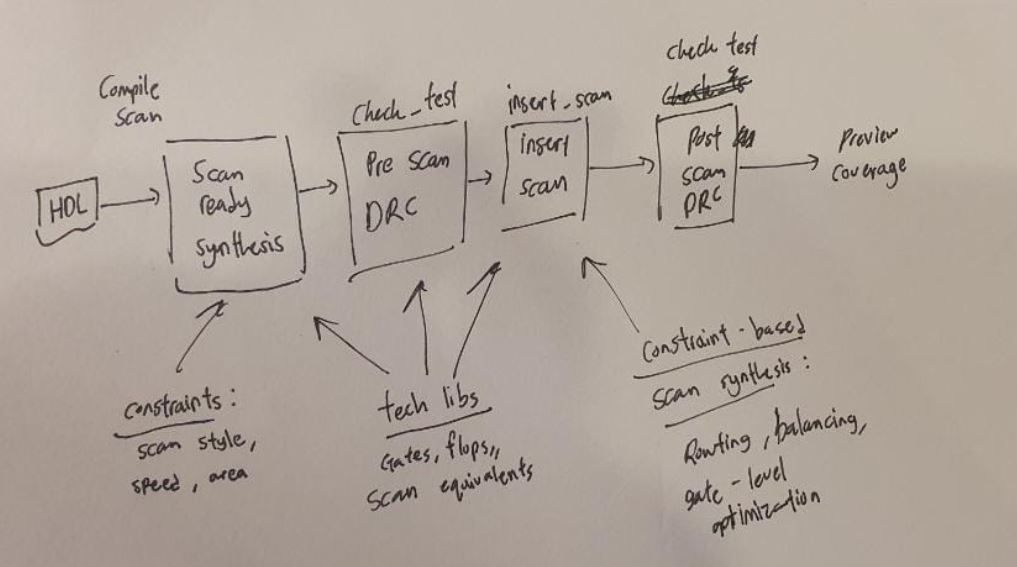 Compile
Scan
HDL
Scan
ready
synthesis
Check_test
Pre scan
DRC
insert_scan
insert
scan
Check test
Post
scan
DRC
Preview
coverage
constraints:
scan style,
speed, area
tech libs
Gates, flops,,
scan equivalents
Constraint-based
scan synthesis:
Routing, balancing,
gate-level
optimization